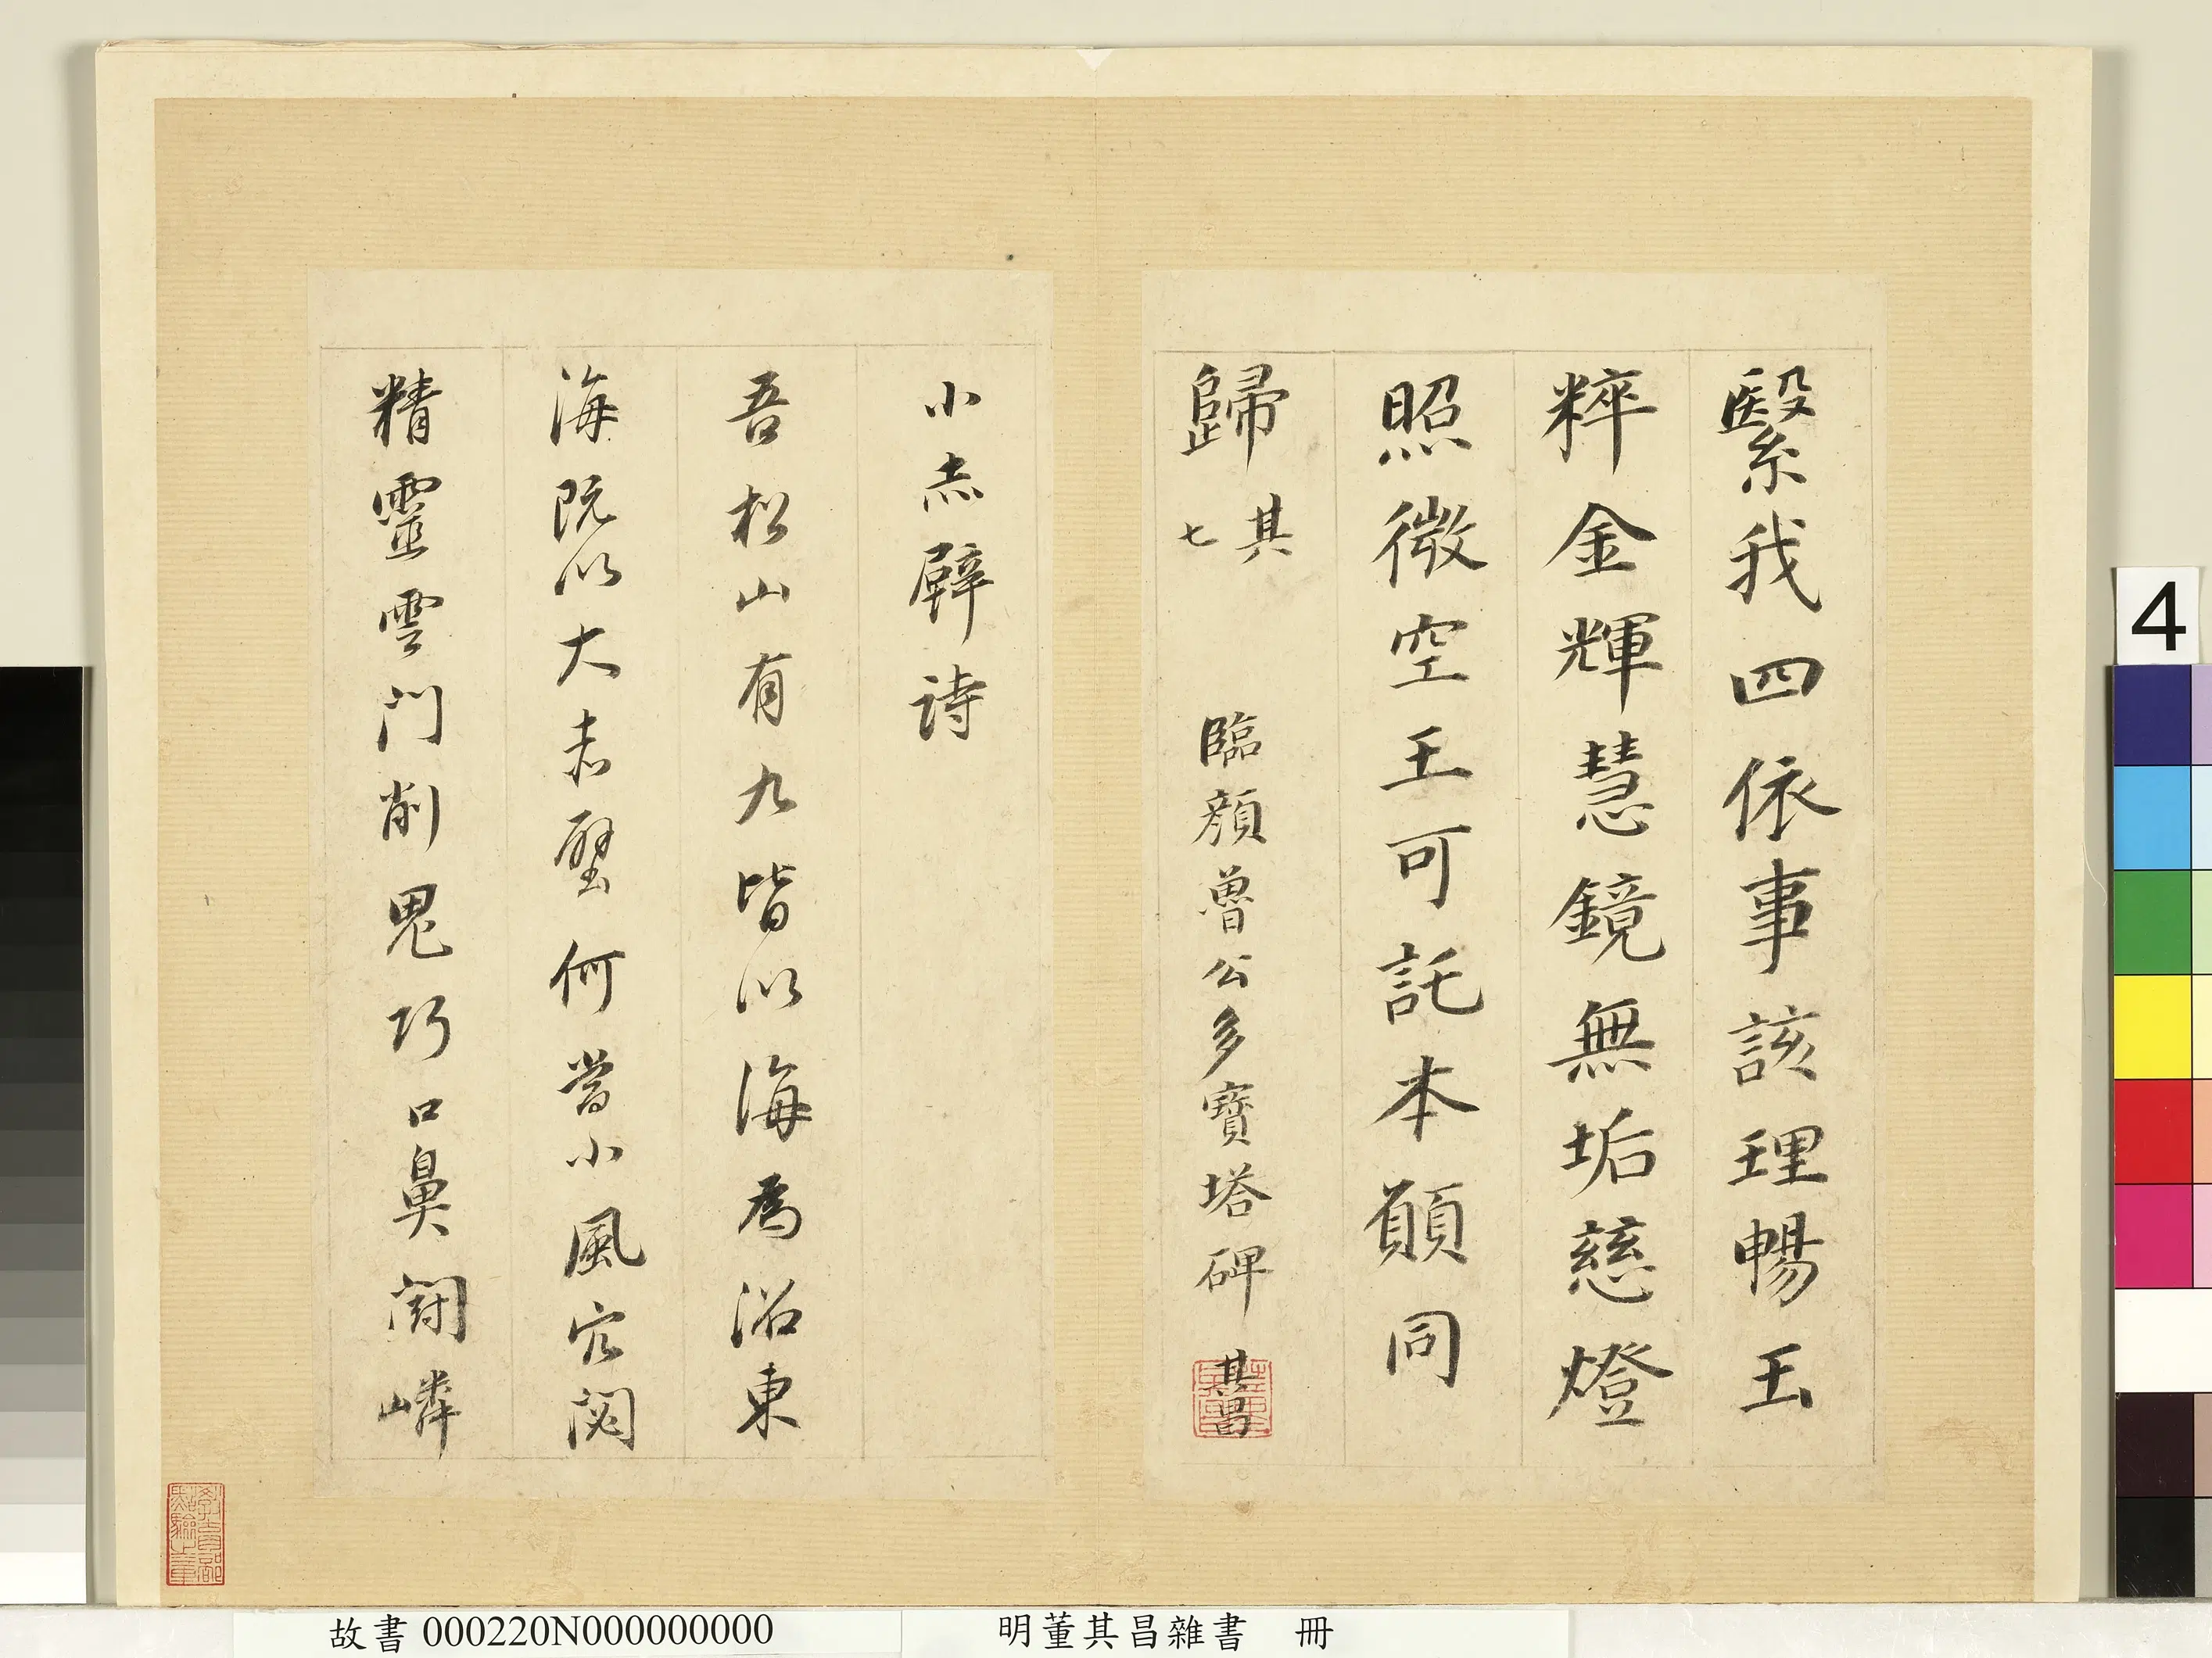 繄我四依事該理暢玉
粹金輝慧鏡無垢慈燈
照微空王可託本願同
歸 其七 臨顏魯公多寶塔碑 其昌
小赤壁詩
吾松山有九皆以海為沼東
海既以大赤壁何嘗小風穴閟
精靈雲門削鬼巧口鼻閜嶙
教育部點驗之章
4
故書000220N000000000
明董其昌雜書 冊